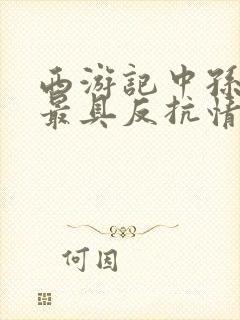 西游記中孫
最具反抗情
何因